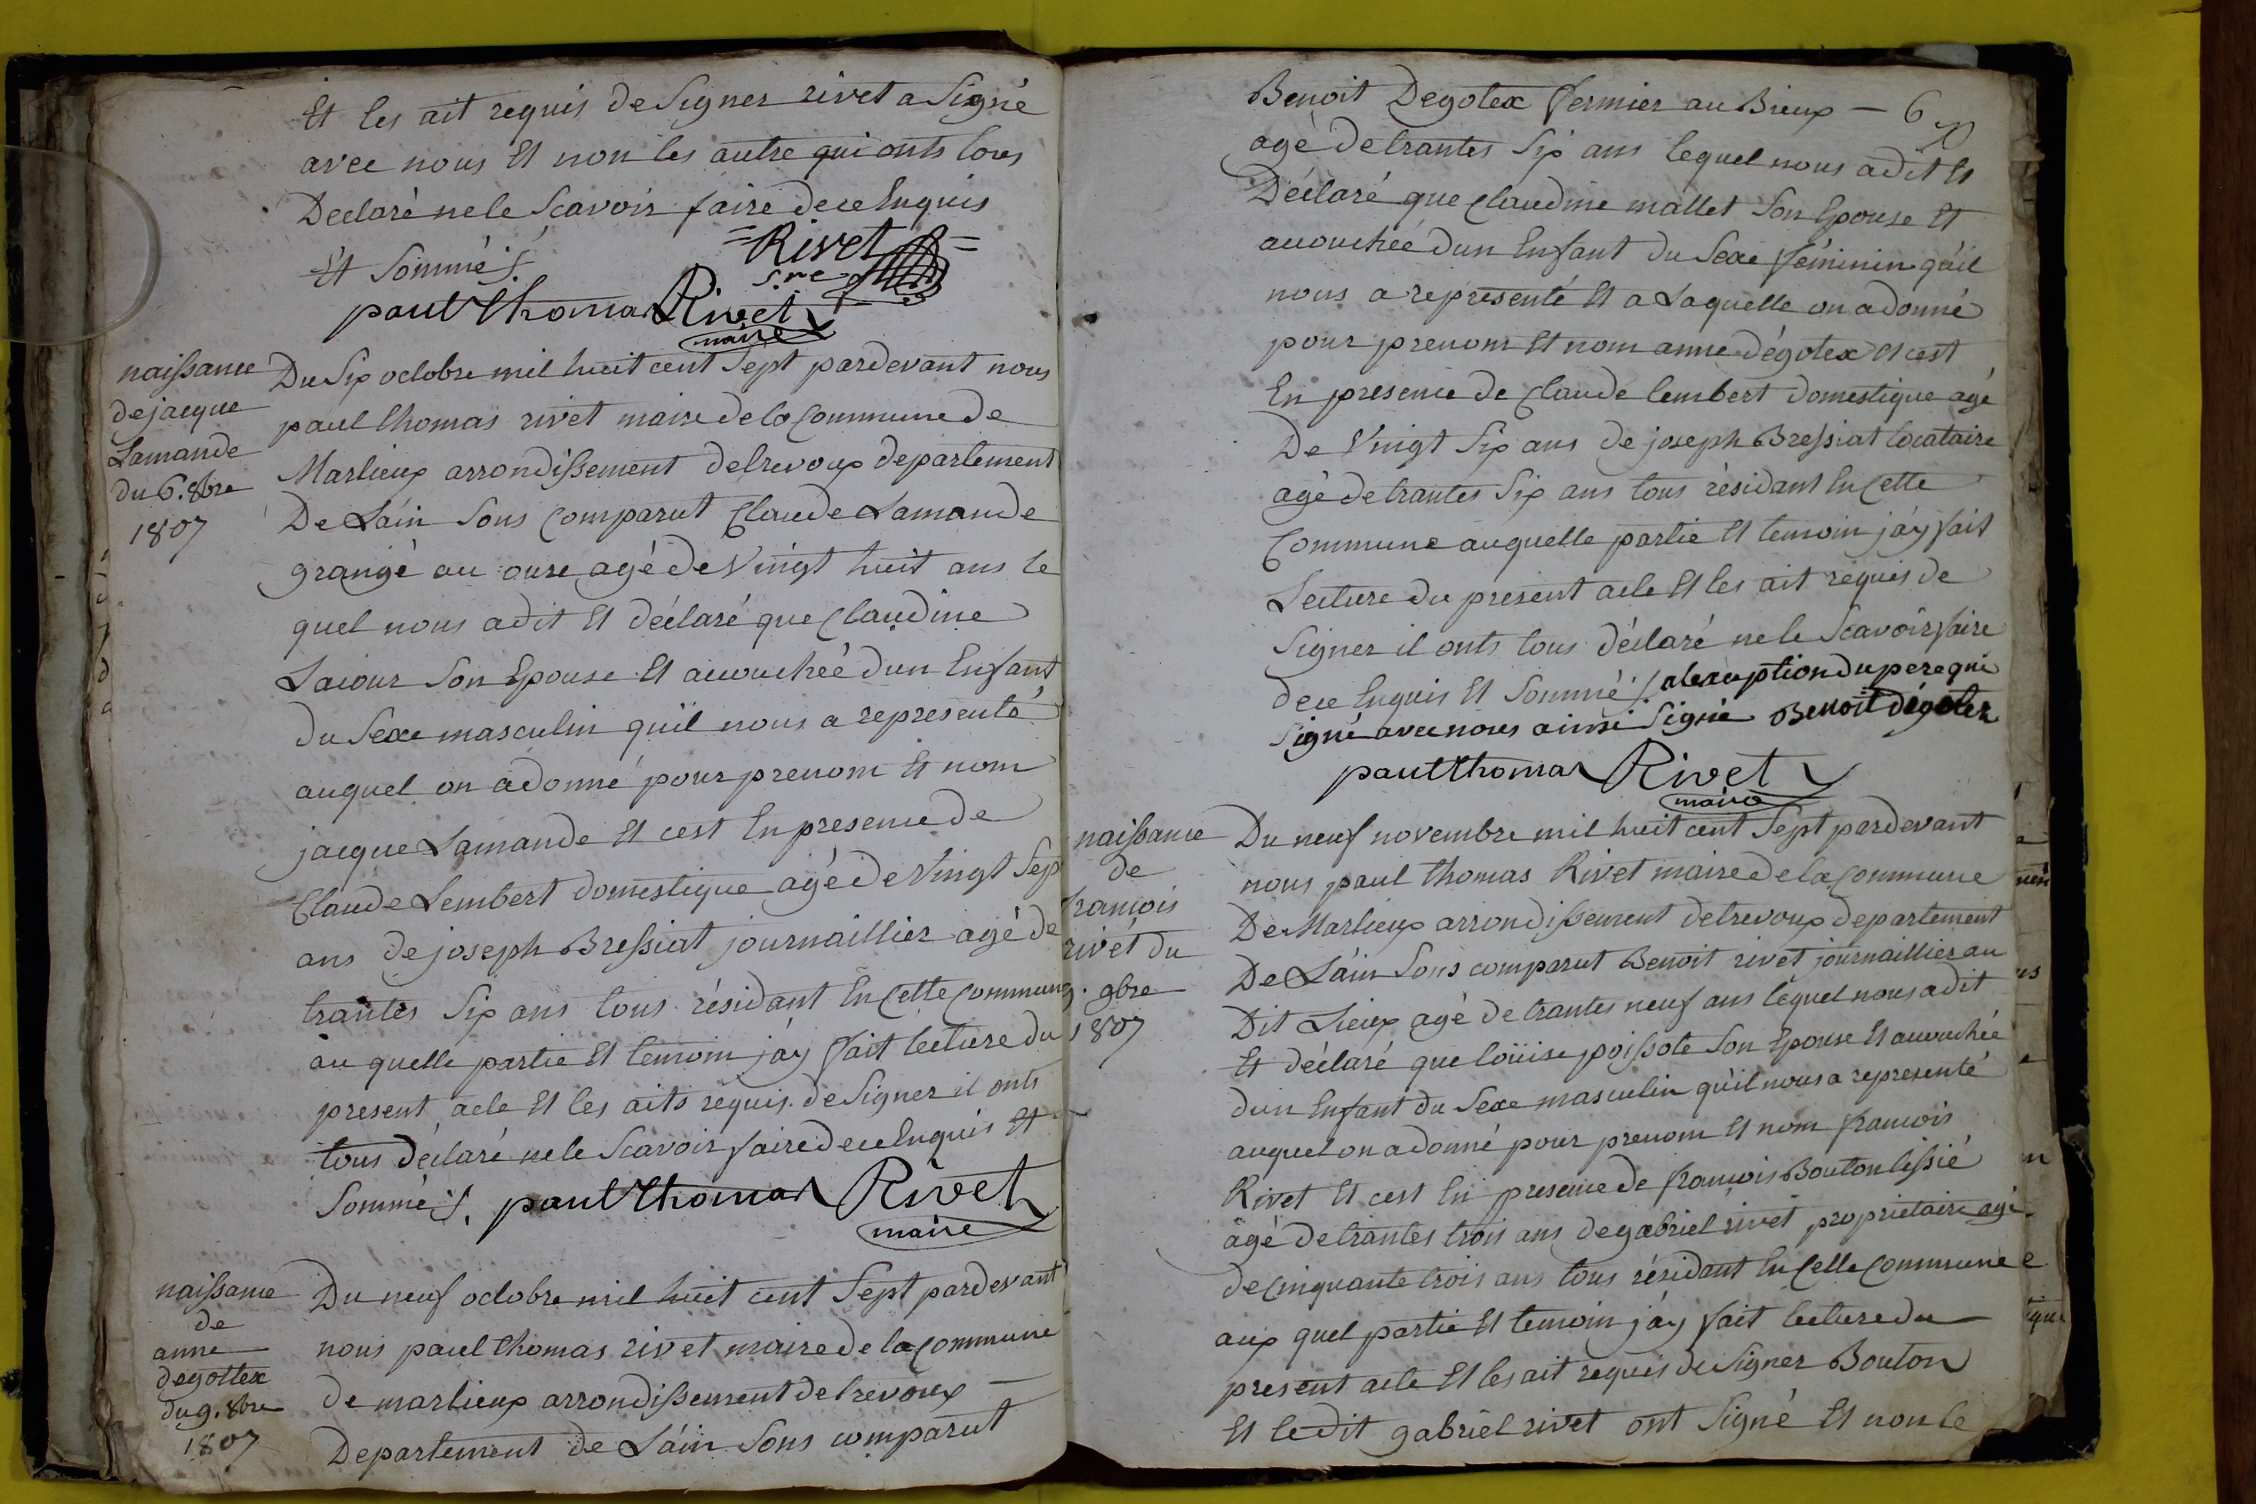 Et les ait requis de Signer rivet a Signé
avec nous Et non les autre qui onts tous
Declaré ne le Scavoir faire dece Enquis
Et Sommé ./.
= Rivet =
s.re
paul thomas Rivet
maire
naissance
de jacque
Lamande
du 6. 8bre
1807
Du Six octobre mil huit cent Sept pardevant nous
paul thomas rivet maire de la Commune de
Marlieux arrondissement detrevoux departement
De Lain Sons Comparut Claude Lamande
grangé au oure agé de Vingt huit ans le
quel nous adit Et déclaré que Claudine
Lacour Son Epouse Et accouchéé dun Enfant
du Sexe masculin quil nous a representé
auquel on adonné pour prenom Et nom
jacque Lamande Et cest En presence de
Claude Lembert domestique agé de Vingt Sep
ans de joseph Bressiat journaillier agé de
trantes Six ans tous résidant En Cette Commune
au quelle partie Et temoin jáy fait lecture du
present acte Et les aits requis de Signer il onts
tous déclaré ne le Scavoir faire dece Enquis Et
Sommé ./. paul thomas Rivet
maire
naissance
de
anne
degottex
du 9. 8bre
1807
Du neuf octobre mil huit cent Sept pardevant
nous paul thomas rivet maire de la Commune
de marlieux arrondissement detrevoux —
Departement de Láin Sons comparut
Benoit Degotex fermier au Bieux — 6
agé de trantes Six ans lequel nous adit Et
Déclaré que Claudine mallet Son Epouse Et
accouchéé dun Enfant du Sexe féminin quil
nous a representé Et a Laquelle on adonné
pour prenom Et nom anne dégotex Et cest
En presence de Claude lembert domestique agé
De Vingt Six ans de joseph Bressiat locataire
agé de trantes Six ans tous résidant En Cette
Commune auquelle partie Et temoin jáy fait
Lecture du present acte Et les ait requis de
Signer il onts tous déclaré ne le Scavoir faire
dece Enquis Et Sommé ./. alexception du pere qui
Signé avec nous ainsi Signé Benoit dégotex
paul thomas Rivet
maire
naissance
de
francois
rivet du
9. 9bre
1807
Du neuf novembre mil huit cent Sept pardevant
nous paul thomas Rivet maire de la Commune
De Marlieux arrondissement detrevoux departement
De Láin Sons comparut Benoit rivet journaillier au
Dit Lieux agé de trantes neuf ans lequel nous adit
Et déclaré que loüise poissote Son Epouse Et accouchée
dun Enfant du Sexe masculin quil nous a representé
auquel on adonné pour prenom Et nom francois
Rivet Et cest En presence de francois Bouton tissié
agé de trantes trois ans de gabriel rivet proprietaire agé
de Cinquante trois ans tous résidant En Cette Commune
aux quel partie Et temoin jáy fait lecture du
present acte Et les ait requis de Signer Bouton
Et ledit gabriel rivet ont Signé Et non le